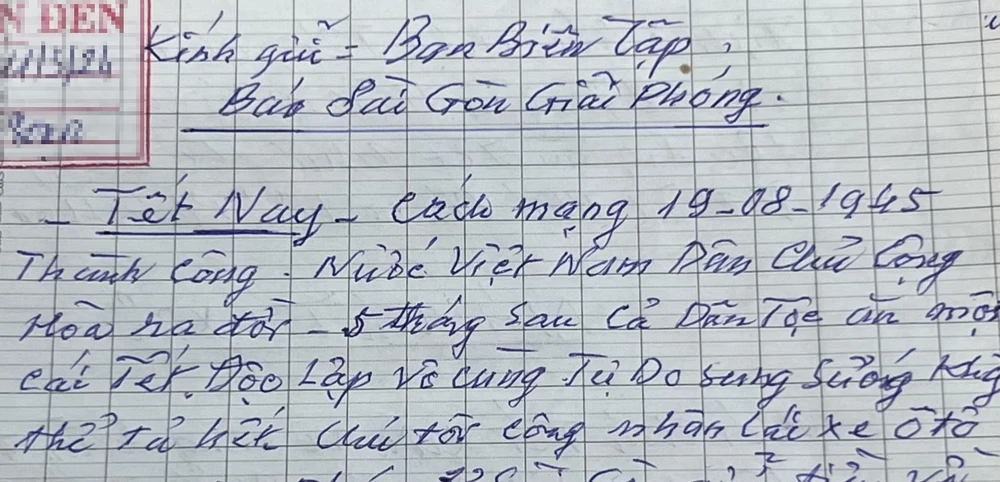 N ĐẾN
Kính gửi = Ban Biên Tập,
Báo Sài Gòn Giải Phóng.
- Tết Nay - Cách mạng 19-08-1945
Thành Công. Nước Việt Nam Dân Chủ Cộng
Hòa ra đời - 5 tháng sau Cả Dân Tộc ăn một
cái Tết Độc Lập vô cùng Tự Do sung sướng
thể tả hết Chú tôi công nhân lái xe ôtô